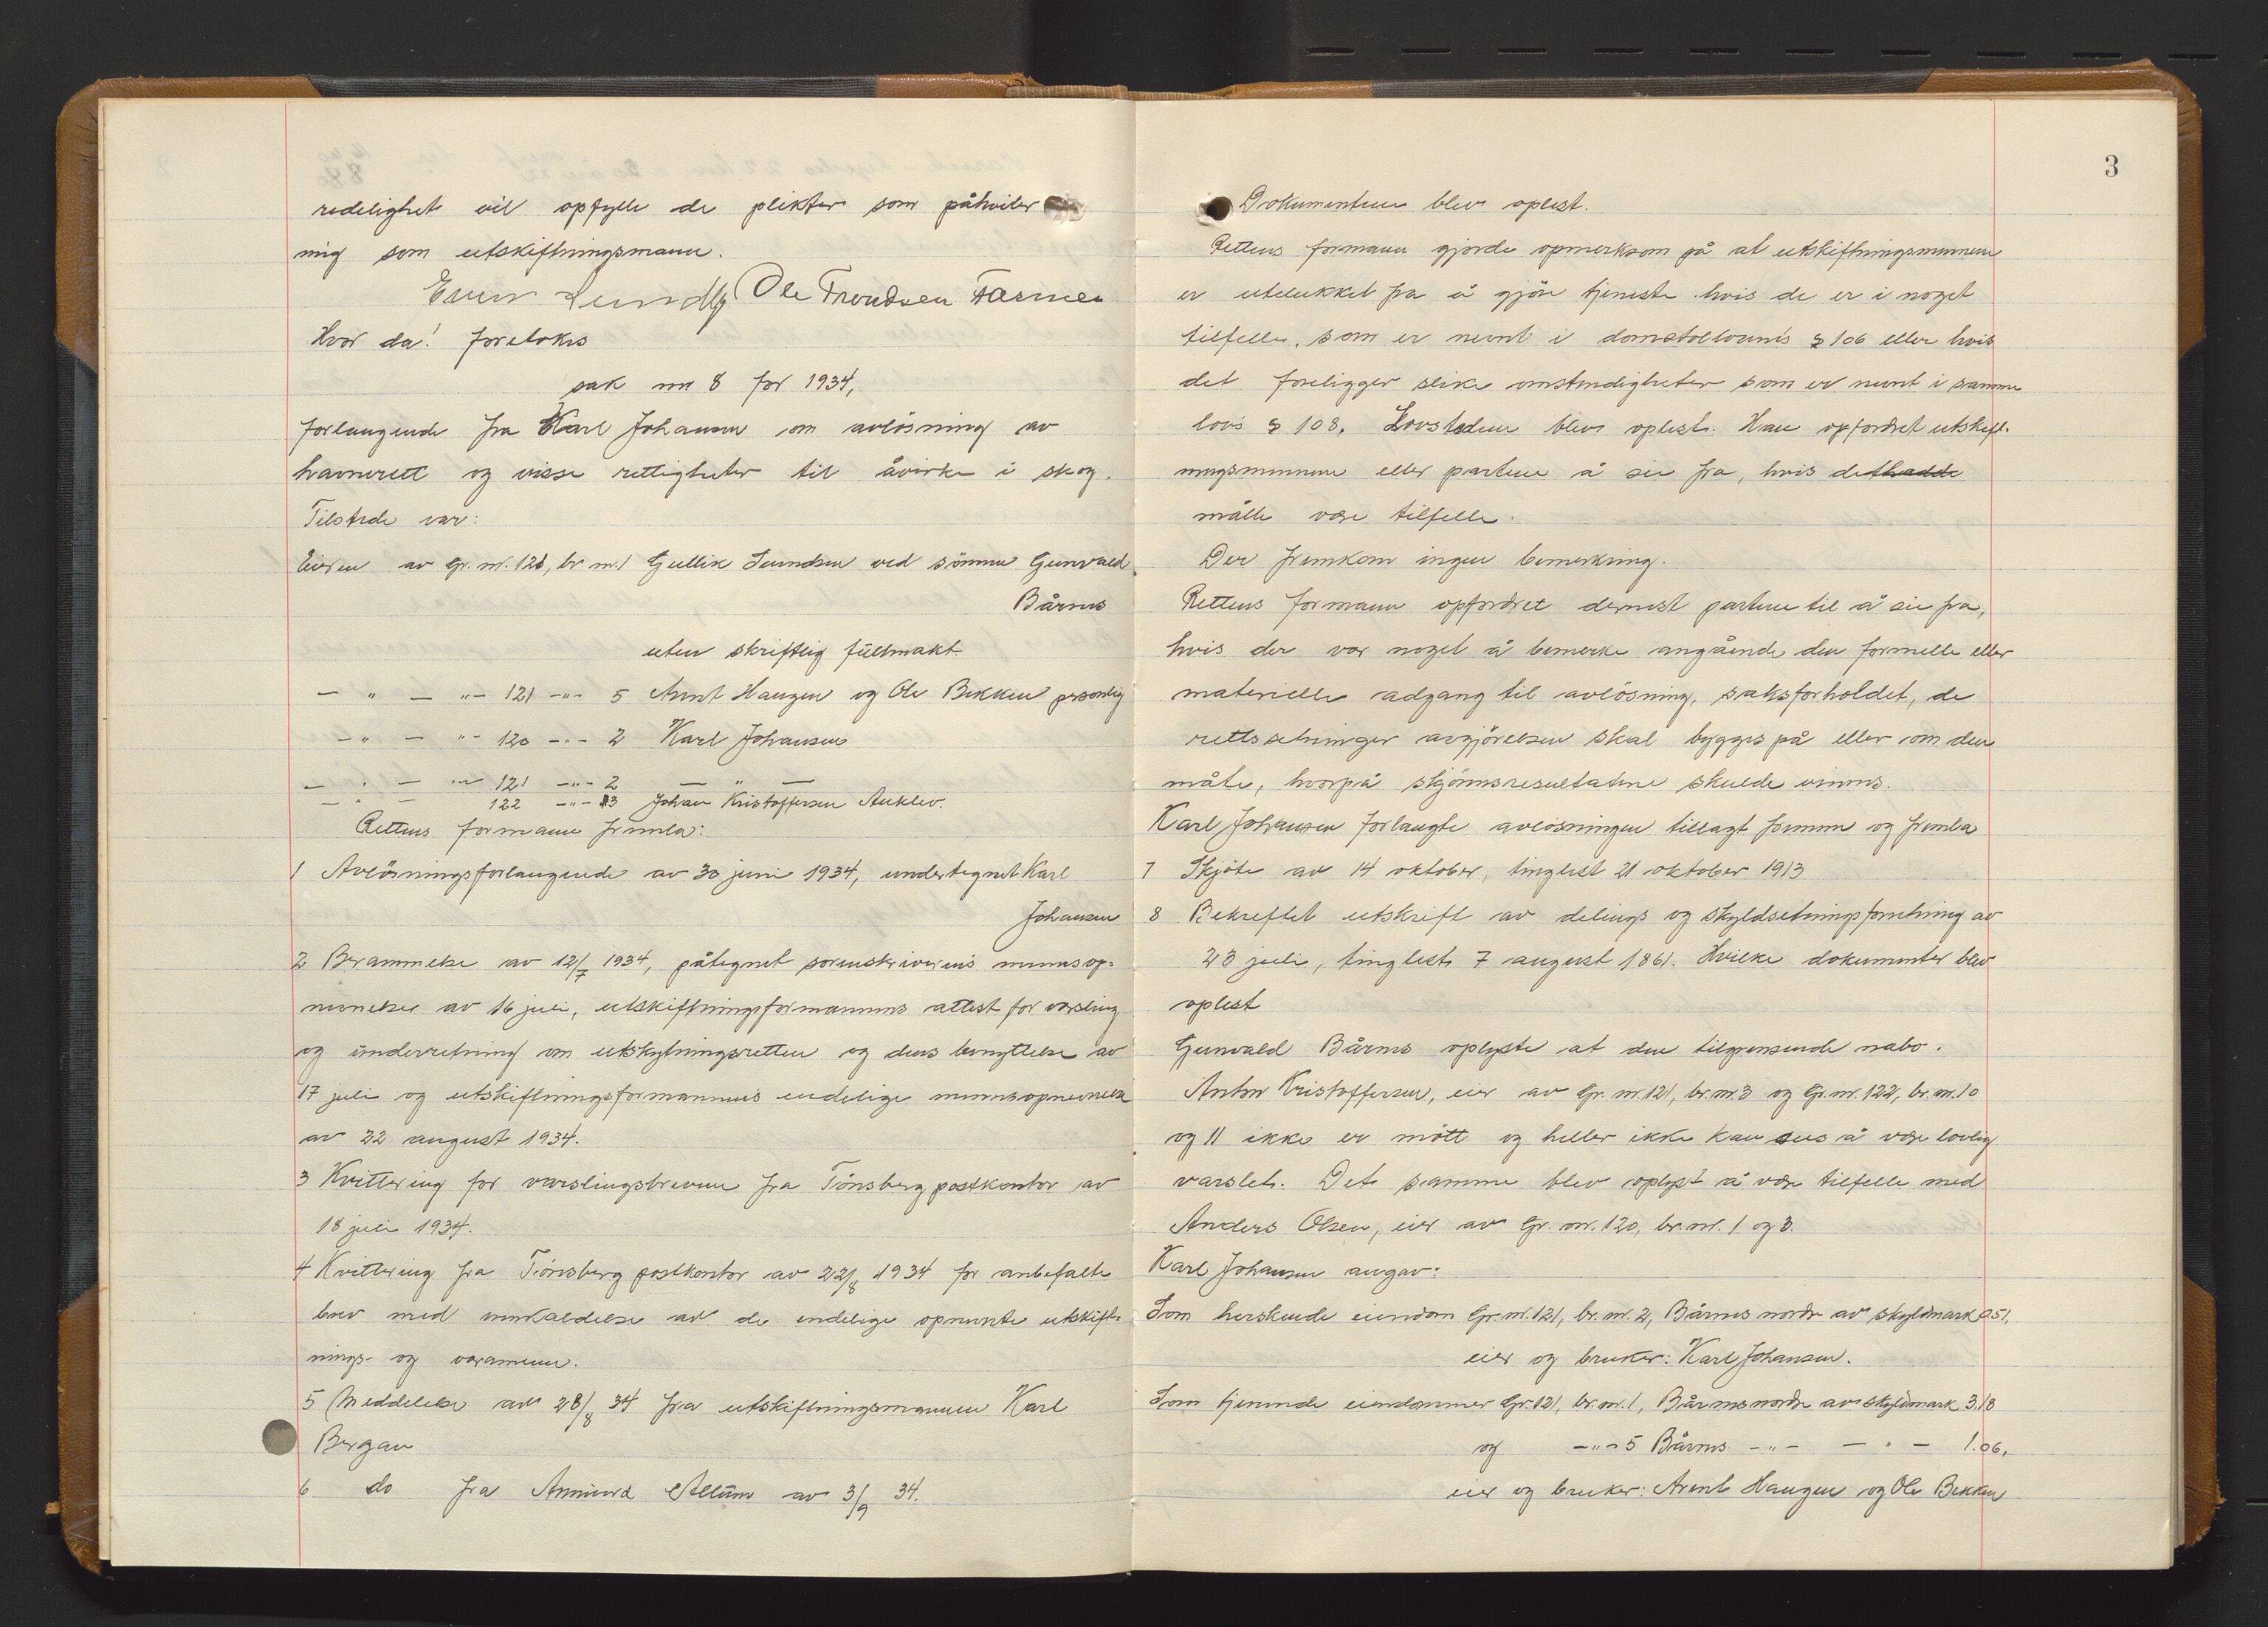 redelighet vil opfylle de plikter som påhviler
mig som utskiftningsmann.
Even Lundby Ole Trondsen Farmen
Hvor da! foretokes
sak nr 8 for 1934,
forlangende fra Karl Johansen om avlösning av
havnerett og visse rettigheter til åvirke i skog.
Tilstede var:
Eieren av Gr. nr. 121, br nr. 1 Gullik Simensen ved sönnen Gunvald
Bårnes
uten skriftlig fullmakt
— " — "— 121 —"— 5 Arent Haugen og Ole Bekken personlig
— " — "— 120 —"— 2 Karl Johansen
— " — "— 121 —"— 2 — " —
— " — 122 —"— 13 Johan Kristoffersen Auklev.
Rettens formann fremla:
1 Avlösningsforlangende av 30 juni 1934, undertegnet Karl
Johansen
2 Berammelse av 12/7 1934, påtegnet sorenskriverens mannsop=
nevnelse av 16 juli, utskiftningsformannens attest for varsling
og underretning om utskytningsretten og dens benyttelse av
17 juli og utskiftningsformannens endelige mannsopnevnelse
av 22 august 1934.
3 Kvittering for varslingsbrevene fra Tönsberg postkontor av
18 juli 1934.
4 Kvittering fra Tönsberg postkontor av 22/8 1934 for anbefalte
brev med innkaldelse av de endelige opnevnte utskift=
nings- og varamenn.
5 Meddelelse av 28/8 34 fra utskiftningsmannen Karl
Bergan
6 do fra Allum av 3/9 34.
3
Dokumentene blev oplest.
Rettens formann gjorde opmerksom på at utskiftningsmennene
er utelukket fra å gjöre tjeneste hvis de er i noget
tilfelle, som er nevnt i domstollovens § 106 eller hvis
det foreligger slike omstendigheter som er nevnt i samme
lovs § 108. Lovstedene blev oplest. Han opfordret utskift=
ningsmennene eller partene å sie fra, hvis det hadde
måtte være tilfelle.
Der fremkom ingen bemerkning.
Rettens formann opfordret dernest partene til å sie fra,
hvis der var noget å bemerke angående den formelle eller
materielle adgang til avlösning, saksforholdet, de
rettssetninger avgjörelsen skal bygges på eller om den
måte, hvorpå skjönnsresultatene skulde vinnes.
Karl Johansen forlangte avlösningen tillagt fremme og fremla
7 Skjöte av 14 oktober, tinglest 21 oktober 1913
8 Bekreftet utskrift av delings og skyldsetningsforretning av
23 juli, tinglest 7 august 1861. Hvilke dokumenter blev
oplest
Gunvald Bårnes oplyste at den tilgrensende nabo.
Anton Kristoffersen, eier av Gr. nr. 121, br. nr. 3 og Gr. nr. 122, br. nr. 10
og 11 ikke er mött og heller ikke kan sees å være lovlig
varslet. Det samme blev oplyst å være tilfelle med
Anders Olsen, eier av Gr. nr. 120, br. nr. 1 og 3.
Karl Johansen angav:
Som herskende eiendom Gr. nr. 121, br. nr. 2, Bårnes nordre av skyldmark 0.51,
eier og bruker: Karl Johansen.
Som tjenende eiendommer Gr. 121, br. nr. 1, Bårnes nordre av skyldmark 3.18
og —"— 5 Bårnes —"— — " — 1.06,
eier og bruker: Arent Haugen og Ole Bekken